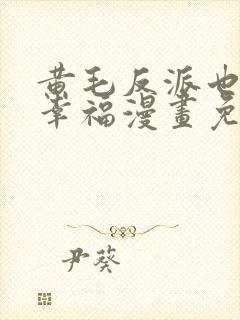 黄毛反派也
幸福漫畫免
尹葵